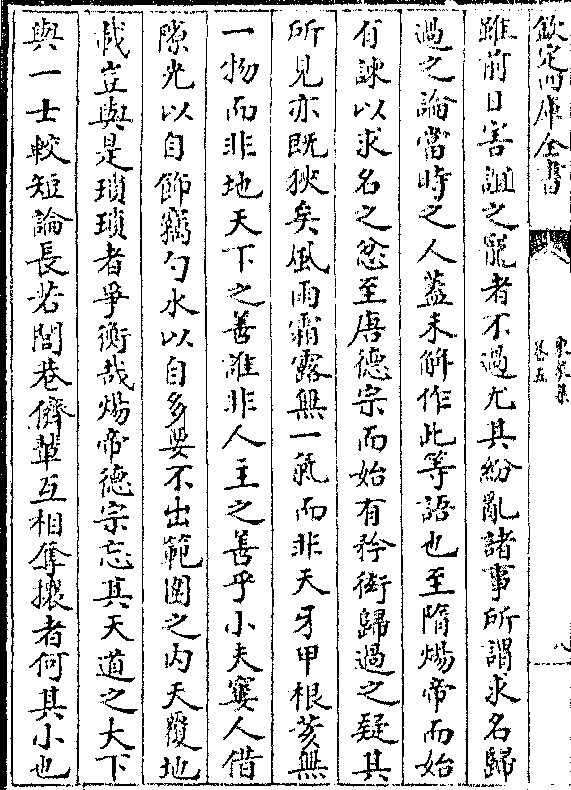 欽定四庫全書
東萊集
卷五
八
雖前日害誼之寵者不過尤其紛亂諸事所謂求名歸
過之論當時之人蓋未解作此等語也至隋煬帝而始
有諫以求名之忿至唐德宗而始有矜衒歸過之疑其
所見亦既狹矣風雨霜露無一氣而非天牙甲根荄無
一物而非地天下之善誰非人主之善乎小夫窶人借
隙光以自飾竊勺水以自多要不出範圍之内天覆地
載豈與是瑣瑣者爭衡哉煬帝德宗忘其天道之大下
與一士較短論長若閭巷儕輩互相奪攘者何其小也